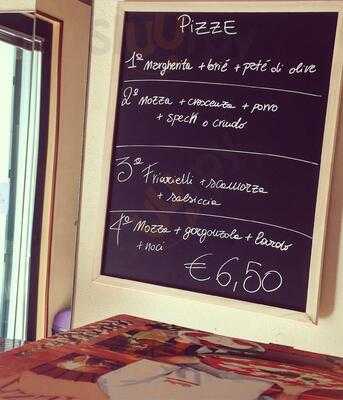 PIZZE
1ª Margherita + briè + patè di olive
2ª Mozza + crescenza + porro
+ speck o crudo
3ª Friarielli + scamorza
+ salsiccia
4ª Mozza + gorgonzola + lardo
+ noci
€ 6,50